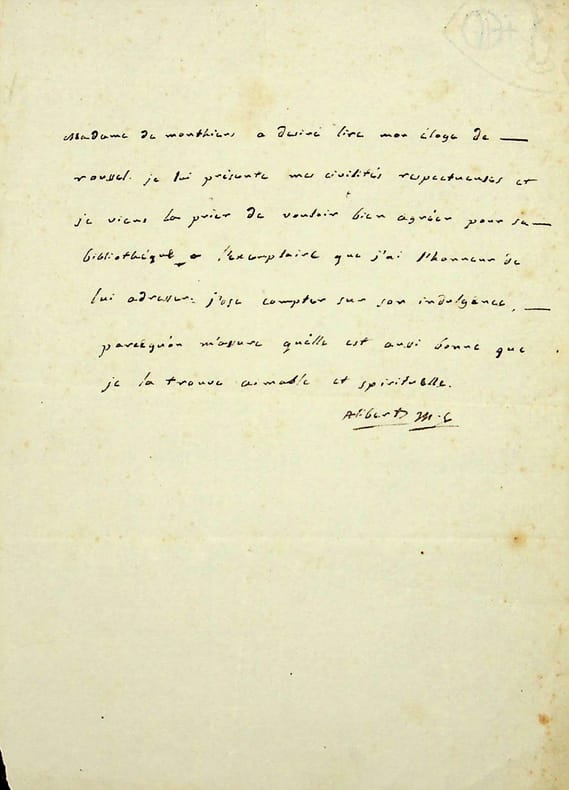 Madame de monthiers a desiré lire mon éloge de —
roussel. je lui présente mes civilités respectueuses et
je viens la prier de vouloir bien agréer pour sa —
bibliothéque l'exemplaire que j'ai l'honneur de
lui adresser: j'ose compter sur son indulgence, —
parcequ'on m'assure qu'elle est aussi bonne que
je la trouve aimable et spirituelle.
Alibert